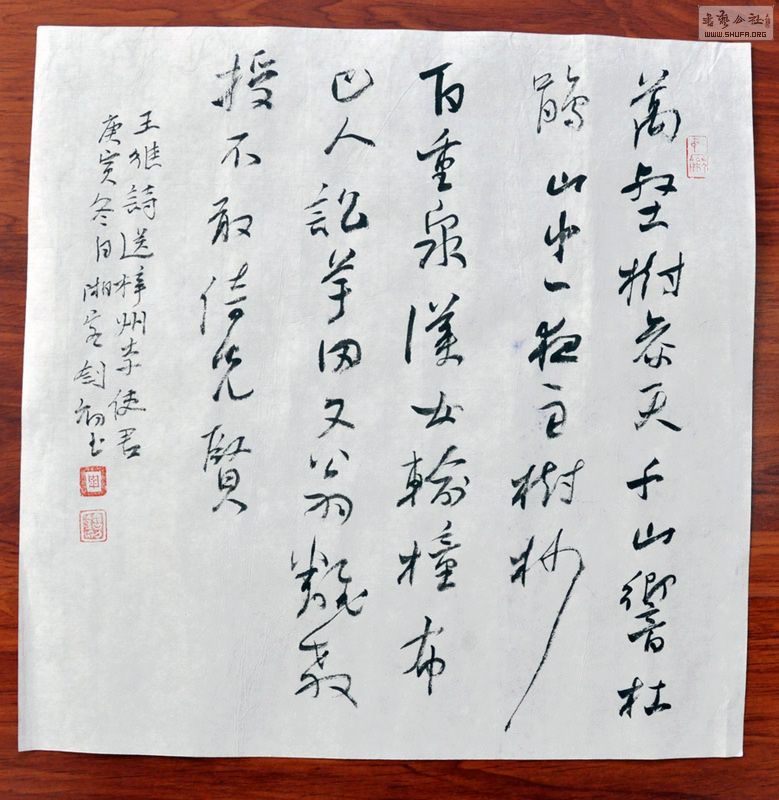 書藝公社
WWW.SHUFA.ORG
萬壑樹參天千山響杜
鵑山中一夜雨樹杪
百重泉漢女輸橦布
巴人訟芋田文翁飜教
授不敢倚先賢
王維詩送梓州李使君
庚寅冬日湘客剑